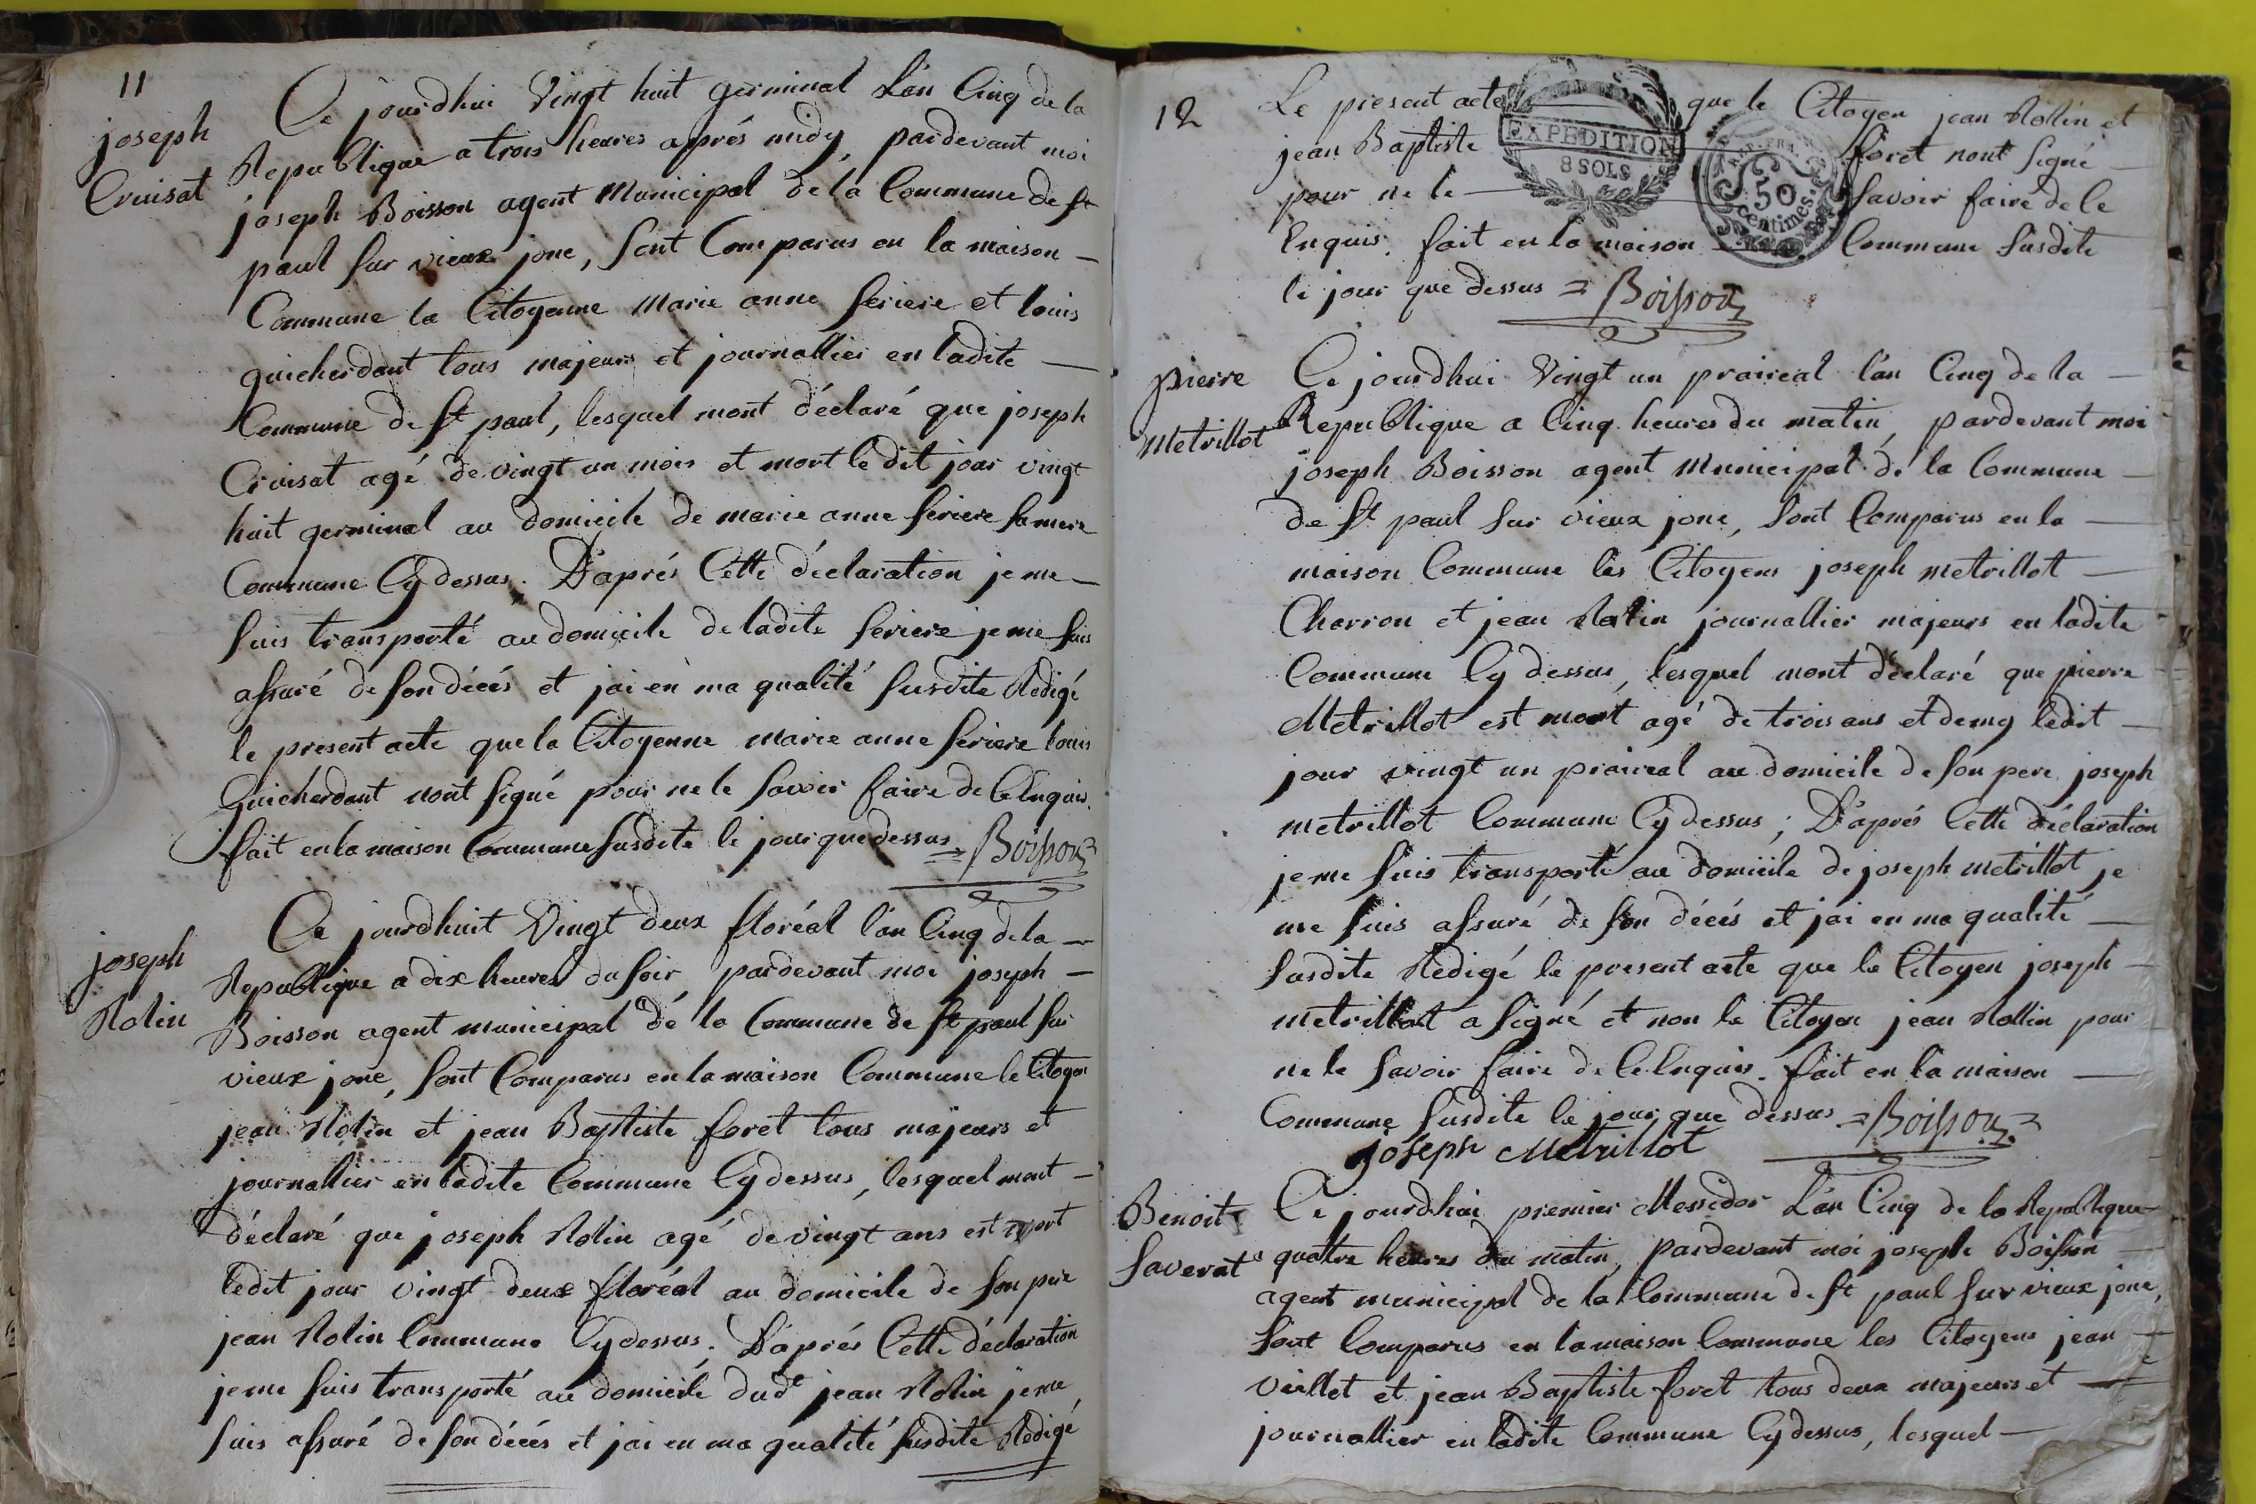 11
joseph
Cruisat
Ce jourdhui Vingt huit germinal L'an Cinq de la
Republique a trois heures aprés midy, pardevant moi
joseph Boisson agent Municipal de la Commune de St
paul sur vieux jonc, sont Comparus en la maison —
Commune la Citoyenne Marie anne feriere et louis
guicherdant tous majeurs et journallier en ladite —
Commune de St paul, lesquel mont déclaré que joseph
Cruisat agé de vingt un mois et mort le dit jour vingt
huit germinal au domicile de marie anne feriere sa mere
Commune Cydessus. D'aprés Cette déclaration je me —
suis transporté au domicile de ladite feriere je me suis
assuré de son décés et jai en ma qualité susdite Redigé
le present acte que la Citoyenne marie anne feriere louis
Guicherdant nont signé pour ne le savoir faire de Ce Enquis.
fait en la maison Commune susdite le jour que dessus = Boisson
joseph
Rolin
Ce jourdhuit Vingt deux floréal l'an Cinq de la —
Republique a dix heures du soir, pardevant moi joseph —
Boisson agent municipal de la Commune de St paul sur
vieux jonc, sont Comparus en la maison Commune le Citoyen
jean Rolin et jean Baptiste foret tous majeurs et
journallier en ladite Commune Cydessus, lesquel mont —
déclaré que joseph Rolin agé de vingt ans est mort
ledit jour vingt deux floréal au domicile de son pere
jean Rolin Commune Cydessus. D'aprés Cette déclaration
je me suis transporté au domicile dudt jean Rolin je me
suis assuré de son décés et jai en ma qualité susdite Redigé
12
Le present acte — que le Citoyen jean Rollin et
jean Baptiste — foret nont signé
pour ne le — savoir faire de Ce
Enquis. fait en la maison — Commune susdite
le jour que dessus = Boisson
EXPEDITION
8 SOLS
REP. FRA.
50
Centimes.
pierre
Metrillot
Ce jourdhui Vingt un prairéal l'an Cinq de la —
Republique a Cinq heures du matin, pardevant moi
joseph Boisson agent Municipal de la Commune —
de St paul sur vieux jonc, sont Comparus en la —
maison Commune les Citoyens joseph metrillot —
Charron et jean Rolin journallier majeurs en ladite
Commune Cy dessus, lesquel mont déclaré que pierre
Metrillot est mort agé de trois ans et demy ledit —
jour vingt un prairéal au domicile de son pere joseph
metrillot Commune Cy dessus; D'aprés Cette déclaration
je me suis transporté au domicile de joseph metrillot je
me suis assuré de son décés et jai en ma qualité —
susdite Redigé le present acte que le Citoyen joseph —
metrillot a signé et non le Citoyen jean Rollin pour
ne le savoir faire de Ce Enquis. fait en la maison —
Commune susdite le jour que dessus = Boisson
joseph Metrillot
Benoit
Saverat
Ce jourdhui premier Messidor L'an Cinq de la Republique
a quatre heures du matin, pardevant moi joseph Boisson —
agent municipal de la Commune de St paul sur vieux jonc,
sont Comparus en la maison Commune les Citoyens jean —
Viellet et jean Baptiste foret tous deux majeurs et —
journallier en ladite Commune Cydessus, lesquel —